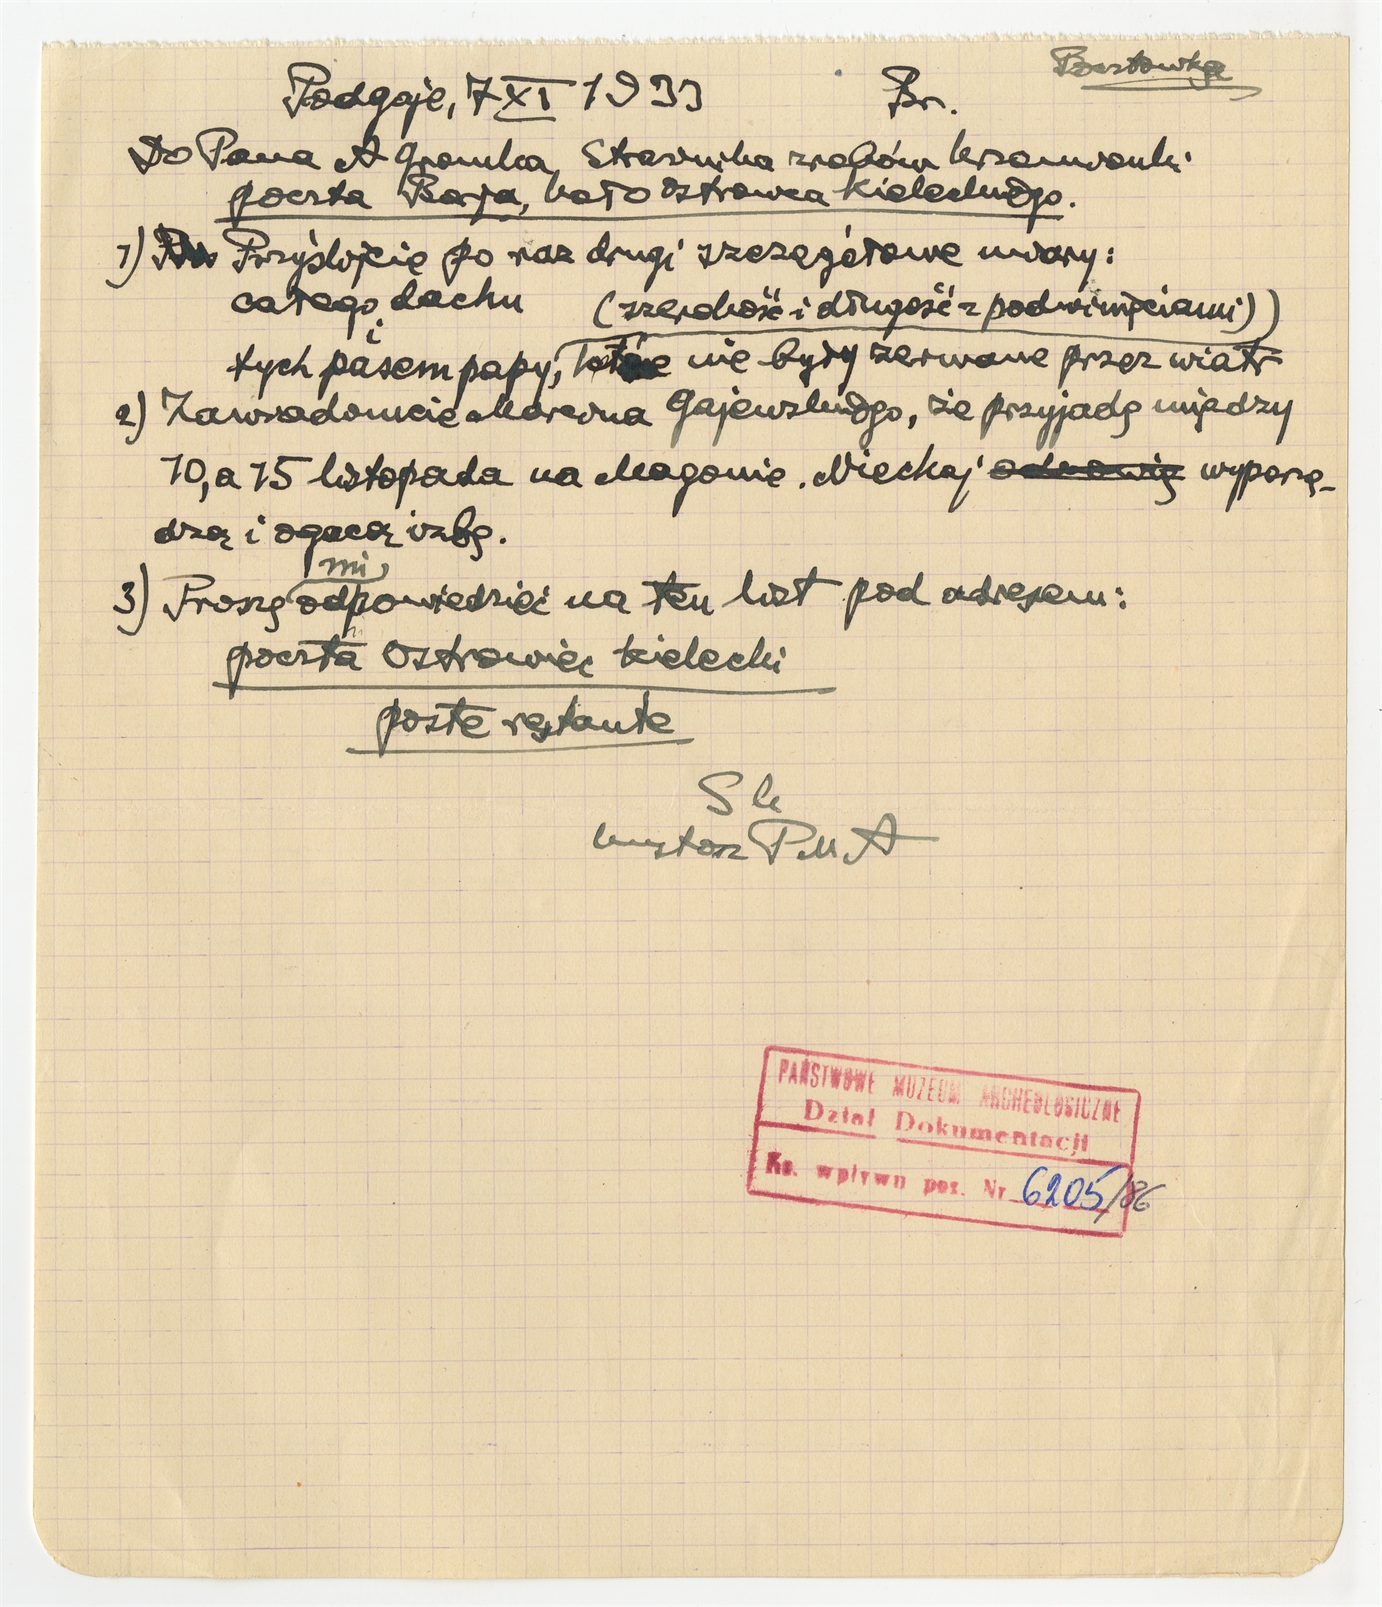 Pocztówka
Podgaje, 7 XI 1933 Br.
Do Pana A Gromka, Strażnika zrębów krzemionki
poczta Barja, koło Ostrowca Kieleckiego.
1) Przyślijcie po raz drugi szczegółowe miary:
całego dachu (szerokość i długość z podwinięciami)
i
tych pasem papy, które nie były zerwane przez wiatr
2) Zawiadomcie Marcina Gajewskiego, że przyjadę między
10, a 15 listopada na Magonie. Niechaj odnowię wyporzą-
dzą i ogacą izbę.
mi
3) Proszę odpowiedzieć na ten list pod adresem:
poczta Ostrowiec kielecki
poste restante
SK
kustosz PMA
PAŃSTWOWE MUZEUM ARCHEOLOGICZNE
Dział Dokumentacji
Ks. wpływu poz. Nr 6205/86